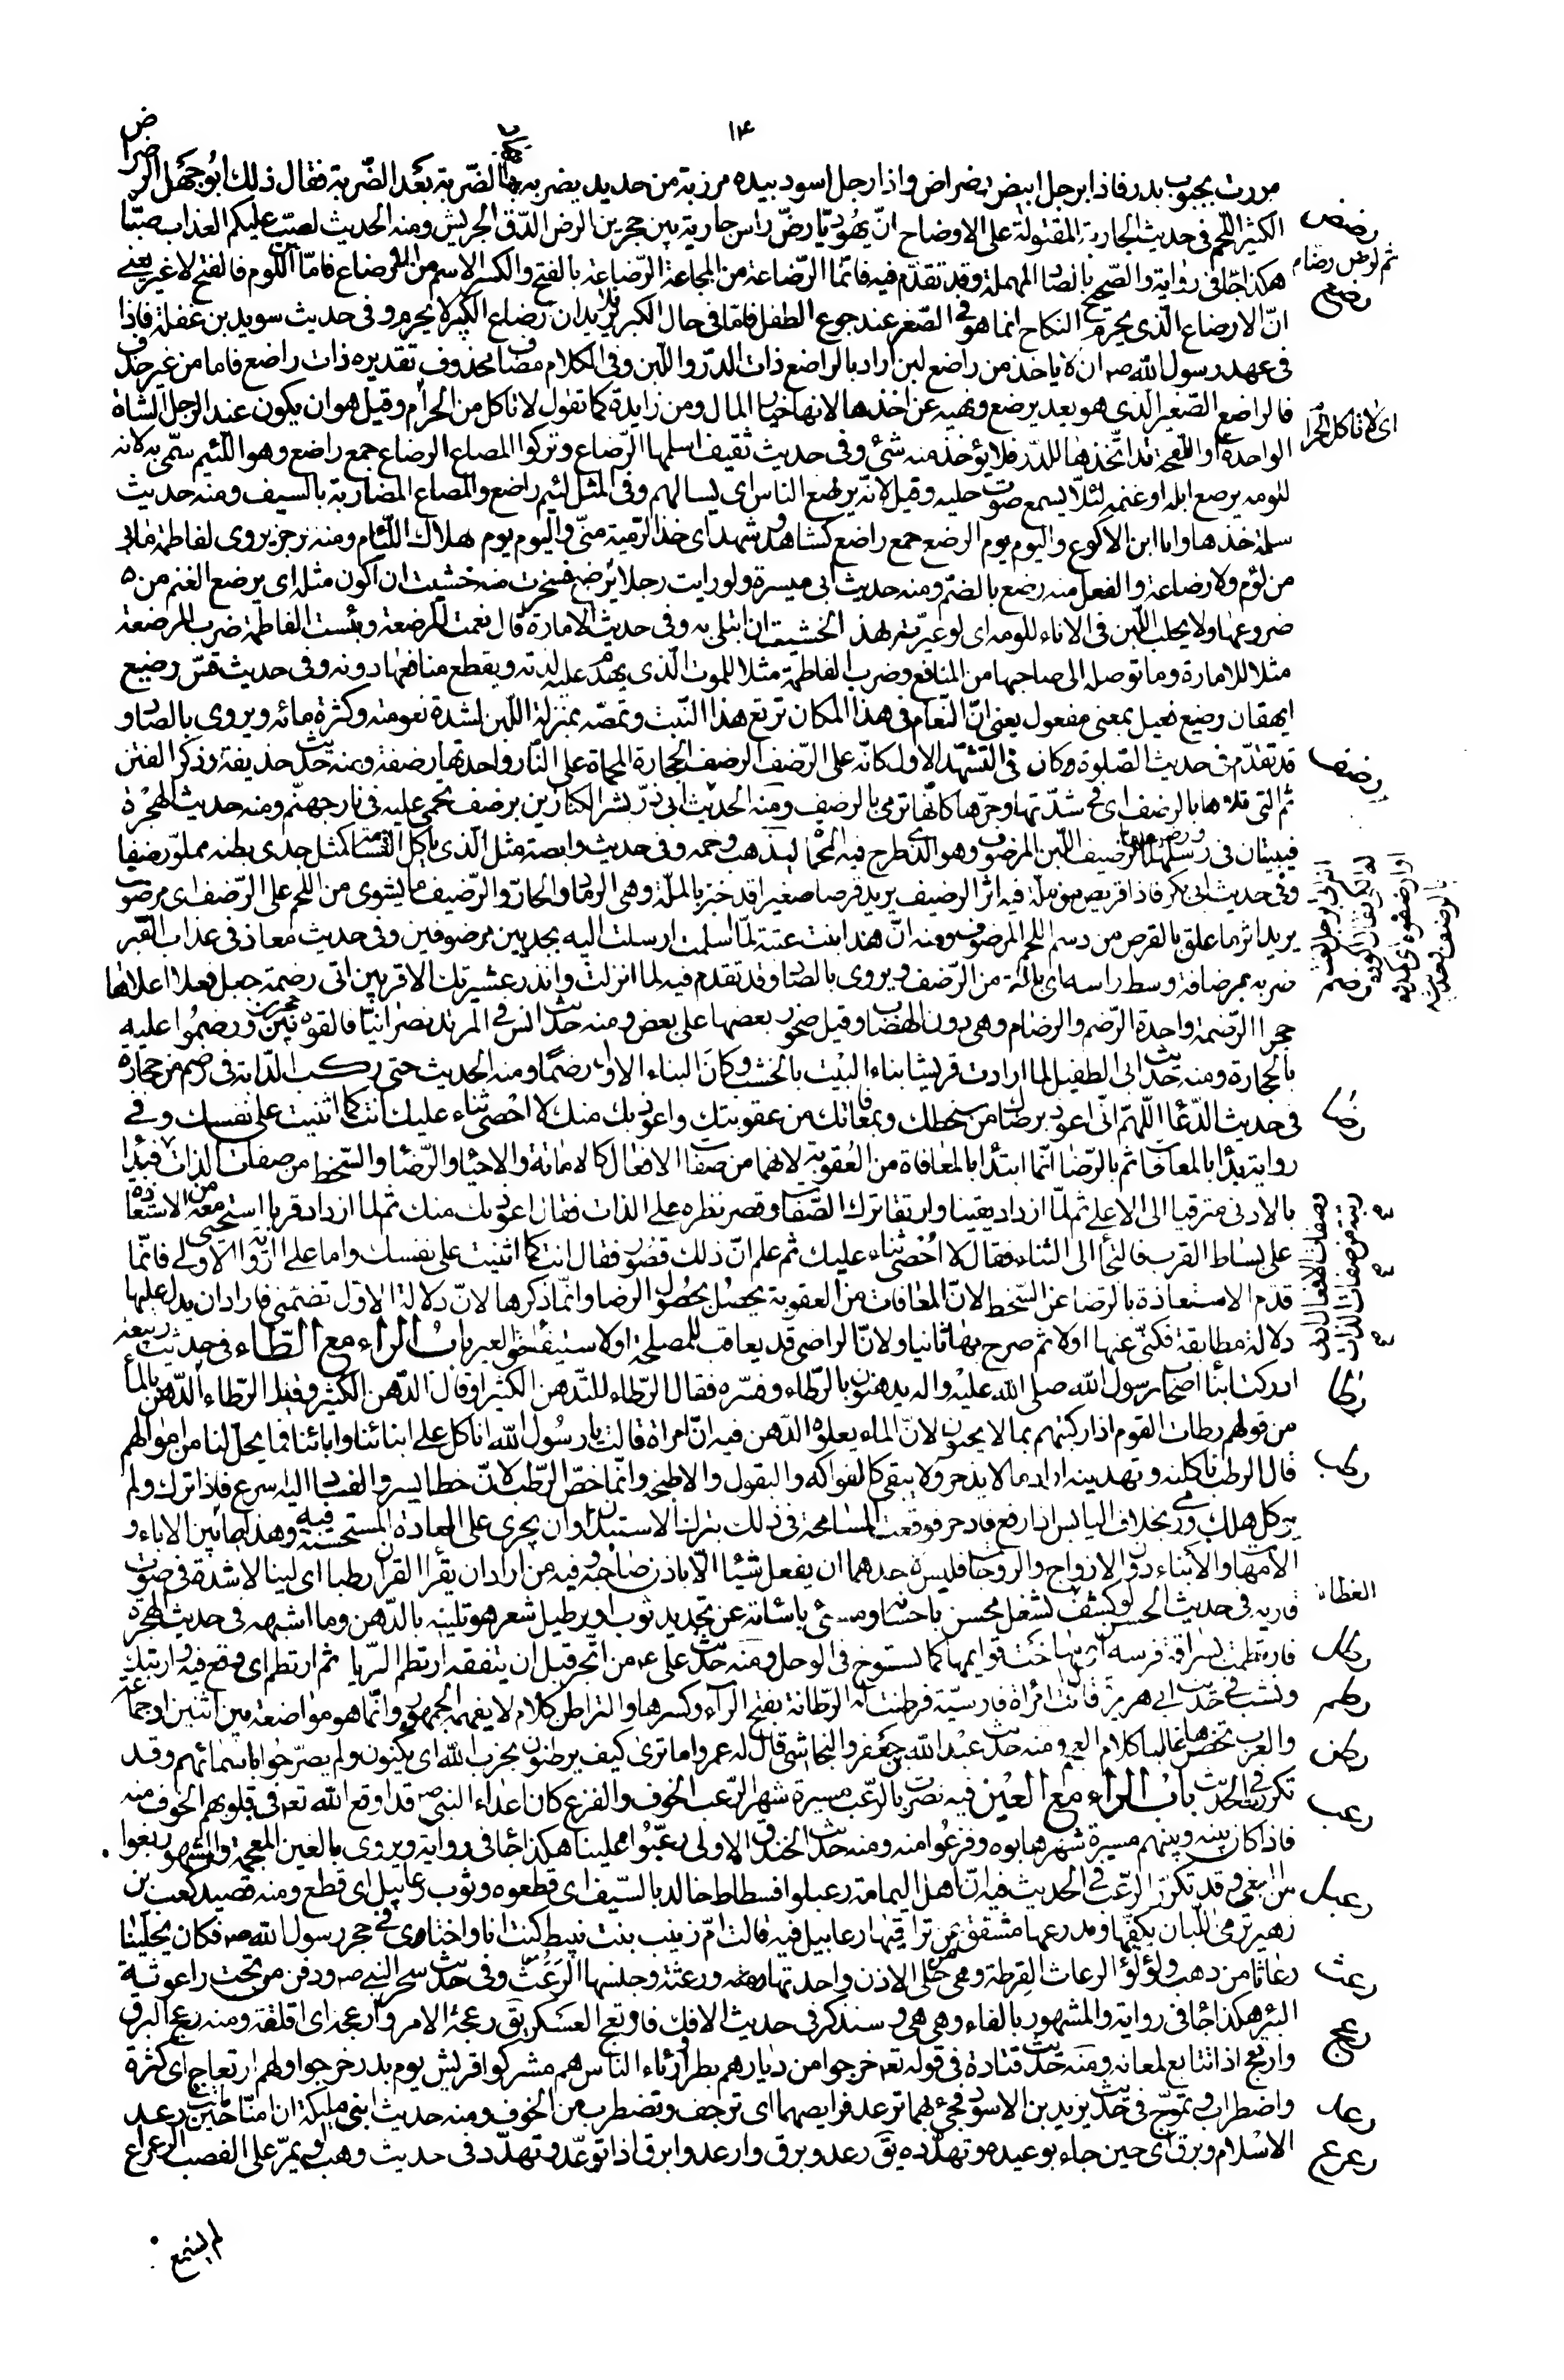 ١٤
مررت بجبوب بدر فاذا برجل ابيض رضراض واذا رجل اسود بيده مرزبة من حديد يضربه بها الضّربة بعد الضّربة فقال ذلك ابو جهل الرضراض
الكثير اللّحم فى حديث الجارية المقتولة على الاوضاح انّ يهوديّا رضّ راس جارية بين حجرين الرض الدّق الجريش ومنه الحديث لصبّ عليكم العذاب صبّا
هكذا جا فى رواية والصّحيح بالصاد المهملة وقد تقدّم فيه فانّما الرّضاعة من المجاعة الرّضاعة بالفتح والكسر الاسم من الارضاع فامّا اللّوم فالفتح لا غير يعنى
انّ الارضاع الّذى يحرم النكاح انما هو فى الصّغر عند جوع الطفل فامّا فى حال الكبر فلا يريد ان رضاع الكبير لا يحرم وفى حديث سويد بن غفلة فاذا
فى عهد رسول الله صه ان لا ياخذ من راضع لبن اراد بالراضع ذات الدرّ واللّبن وفى الكلام مضاف محذوف تقديره ذات راضع فاما من غير حذف
فالراضع الصّغير الّذى هو بعد يرضع ونهيه عن اخذها لانها خيار المال ومن زايدة كما تقول لا تاكل من الحرام وقيل هو ان يكون عند الرجل الشاة
الواحدة او اللّقحة قد اتّخذها للدرّ فلا يؤخذ منه شئ وفى حديث ثقيف اسلمها الرّضاع وتركوا المصاع الرضاع جمع راضع وهو اللّئيم سمّى به لانه
للومه يرضع ابله او غنمه لئلّا يسمع صوت حلبه وقيل لانّه يرضع الناس اى يسالهم وفى المثل لئيم راضع والمصاع المضاربة بالسيف ومنه حديث
سلمة خذها وانا ابن الاكوع واليوم يوم الرضع جمع راضع كشاهد وشهد اى خذ الرّمية منّى واليوم يوم هلاك اللّئام ومنه رجز يروى لفاطمة ما بى
من لؤم ولا رضاعة والفعل منه رضع بالضمّ ومنه حديث ابى ميسرة ولو رايت رجلا يرضع فسخرت منه خشيت ان اكون مثله اى يرضع الغنم من
ضروعها ولا يحلب اللّبن فى الاناء للومه اى لو عيّرته بهذا لخشيت ان ابتلى به وفى حديث الامارة قال نعمت المرضعة وبئست الفاطمة ضرب المرضعة
مثلا للامارة وما توصله الى صاحبها من المنافع وضرب الفاطمة مثلا للموت الّذى يهدم عليه لذته ويقطع منافعها دونه وفى حديث قسّ رضيع
ايهقان رضيع فعيل بمعنى مفعول يعنى انّ النّعام فى هذا المكان ترتع هذا النّبت وتمصّه بمنزلة اللّبن لشدة نعومته وكثرة مائه ويروى بالصاد و
قد تقدّم فى حديث الصّلوة وكان فى التشهّد الاول كانّه على الرّضف الرضف الحجارة المحماة على النّار واحدتها رضفة ومنه حديث حذيفة وذكر الفتن
ثم التى تليها بالرضف اى فى شدّتها وحرّها كانّها ترمى بالرضف ومنه الحديث ابى ذرّ بشر الكنازين برضف يحمى عليه فى نار جهنّم ومنه حديث الهجرة
فيبيتان فى رسلها ورضيفها الرّضيف اللّبن المرضوف وهو الّذى طرح فيه المحماة ليذهب وخمه وفى حديث وابصة مثل الّذى ياكل القسامة كمثل جدى بطنه مملوّ رضيفا
وفى حديث ابى بكر فاذا قريص من ملّة فيه اثر الرضيف يريد قرصا صغيرا قد خبز بالملّة وهى الرّماد الحارّ والرّضيف ما يشوى من اللحم على الرّضف اى مرضوف
يريد اثر ما علق بالقرص من دسم اللحم المرضوف ومنه انّ هندا بنت عتبة لمّا اسلمت ارسلت اليه بجديين مرضوفين وفى حديث معاذ فى عذاب القبر
ضربه بمرضافة وسط راسه اى بالة من الرّضف ويروى بالصاد وقد تقدم فيه لما انزلت وانذر عشيرتك الاقربين اتى رضمة جبل فعلا اعلاها
حجرا الرّضمة واحدة الرّضم والرضام وهى دون الهضاب وقيل صخور بعضها على بعض ومنه حديث انس فى المرتد نصرانيّا فالقوه بين حجرين ورضموا عليه
بالحجارة ومنه حديث ابى الطفيل لما ارادت قريش بناء البيت بالخشب وكان البناء الاول رضما ومنه الحديث حتى ركب الدّابة فى رضم من حجارة
فى حديث الدّعا اللّهمّ انّى اعوذ برضاك من سخطك وبمعافاتك من عقوبتك واعوذ بك منك لا احصى ثناء عليك انت كما اثنيت على نفسك وفى
رواية بدأ بالمعافاة ثم بالرّضا انّما ابتدأ بالمعافاة من العقوبة لانهما من صفات الافعال كالاماتة والاحياء والرّضا والسّخط من صفات الذات فبدأ
بالادنى مترقيا الى الاعلى ثم لمّا ازداد يقينا وارتقا ترك الصّفات وقصر نظره على الذات فقال اعوذ بك منك ثم لما ازداد قربا استحيى معه من الاستعاذة
على بساط القرب فالتجأ الى الثناء فقال لا احصى ثناء عليك ثم علم انّ ذلك قصور فقال انت كما اثنيت على نفسك واما على الرواية الاولى فانّما
قدّم الاستعاذة بالرّضا عن السّخط لانّ المعافات من العقوبة يحصل بحصول الرضا وانّما ذكرها لانّ دلالة الاوّل تضمّنى فاراد ان يدل عليها
دلالة مطابقة فكنّى عنها اولا ثم صرح بها ثانيا ولانّ الراضى قد يعاقب للمصلحة او لاستيفاء حق الغير باب الراء مع الطّاء فى حديث ربيعة
ادركت ابناء اصحاب رسول الله صلى الله عليه واله يدهنون بالرّطاء وفسّره فقال الرّطاء للتّدهن الكثير او قال الدّهن الكثير وقيل الرّطاء الدّهن بالماء
من قولهم رطات القوم اذا ركبتهم بما لا يحبون لانّ الماء يعلوه الدّهن فيه انّ امراة قالت يا رسول الله انا كلّ على ابنائنا وابائنا فما يحلّ لنا من اموالهم
قال الرطب تاكلنه وتهدينه اراد ما لا يذخر ولا يبقى كالفواكه والبقول والاطبخة وانّما خصّ الرّطب لانّ خطبه ايسر والفساد اليه اسرع فاذا ترك ولم
يؤكل هلك ورمى بخلاف اليابس اذا رفع فادخر فوقعت المسامحة فى ذلك بترك الاستيذان وان يجرى على العادة المستحسنة فيه وهذا فيما بين الاباء و
الامّهات والابناء دون الازواج والزوجات فليس لاحدهما ان يفعل شيئا الّا باذن صاحبه وفيه من اراد ان يقرا القران رطبا اى لينا لا شدة فى صوت
قاريه فى حديث الحسن لو كشف الغطاء لشغل محسن باحسانه ومسئ باسائة عن تجديد ثوب او ترطيل شعر هو تليينه بالدّهن وما اشبهه فى حديث الهجرة
فارتطمت بسراقة فرسه اى ساخت قوايمها كما تسوخ فى الوحل ومنه حديث على عه من اتّجر قبل ان يتفقه ارتطم الرّبا ثم ارتطم اى وقع فيه وارتبك
ونشب فى حديث ابى هريرة قال اتت امراة فارسيّة فرطنت له الرّطانة بفتح الرآء وكسرها والتراطن كلام لا يفهمه الجمهور وانّما هو مواضعة بين اثنين او جماعة
والعرب تخصّ بها غالبا كلام العجم ومنه حديث عبد الله بن جعفر والنجاشى قال له عمرو اما ترى كيف يرطنون بحزب الله اى يكنون ولم يصرّحوا باسمائهم وقد
تكرّرت فى الحديث باب الراء مع العين فيه نصرت بالرّعب مسيرة شهر الرّعب الخوف والفزع كان اعداء النبى صه قد اوقع الله تعه فى قلوبهم الخوف منه
فاذا كان بينه وبينهم مسيرة شهر هابوه وفزعوا منه ومنه حديث الخندق الاولى رعّبوا علينا هكذا جا فى رواية ويروى بالغين المعجمة والمشهور بغوا
من البغى وقد تكرّر الرّعب فى الحديث فيه انّ اهل اليمامة رعبلوا فسطاط خالد بالسّيف اى قطعوه وثوب رعابيل اى قطع ومنه قصيد كعب بن
زهير ترمى اللّبان بكفّيها ومدرعها مشقق من تراقيها رعابيل فيه قالت امّ زينب بنت نبيط كنت انا واختاى فى حجر رسول الله صه فكان يحلّينا
رعاثا من ذهب ولؤلؤ الرعاث القرطة وهى من حلى الاذن واحدتها رعثة ورعثة وجنسها الرعث وفى حديث سحر النبى صه ودفن من تحت راعوثة
البئر هكذا جا فى رواية والمشهور بالفاء وهى هى وسنذكر فى حديث الافك فارتعج العسكر يق رعجه الامر وارعجه اى اقلقه ومنه رعج البرق
وارتعج اذا تتابع لمعانه ومنه حديث قتادة فى قوله تعه خرجوا من ديارهم بطرا ورئاء الناس هم مشركوا قريش يوم بدر خرجوا ولهم ارتعاج اى كثرة
واضطراب وتموّج فى حديث يزيد بن الاسود فجئ بهما ترعد فرايصهما اى ترجف وتضطرب من الخوف ومنه حديث ابنى مليكة ان امّنا ماتت حين رعد
الاسلام وبرق اى حين جاء بوعيده وتهدّده يق رعد وبرق وارعد وابرق اذا توعّد وتهدّد فى حديث وهب لو يمرّ على القصب الرعراع
لم يسمع
رضض
ثم لرضّ رضّا
رضع
اى لا تاكل الحرام
رضف
رضم
رضا
رطا
رطب
الغطاء
رطل
رطم
رطن
رعب
رعبل
رعث
رعج
رعد
رعرع